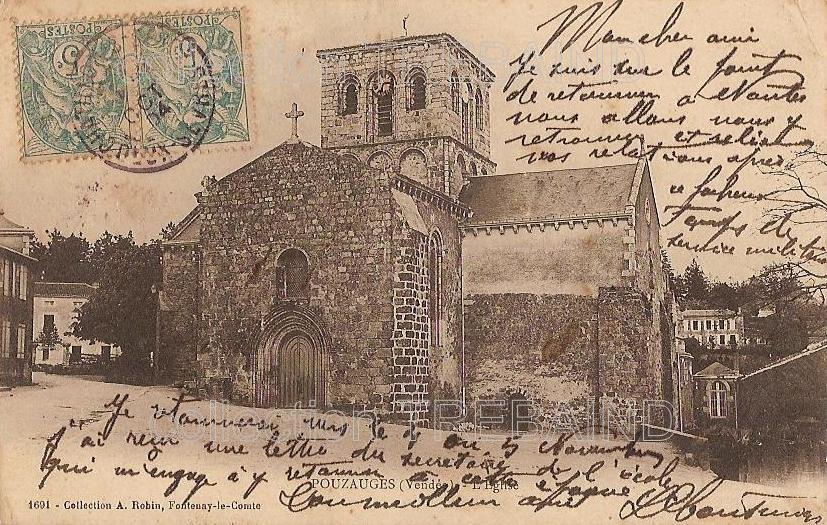 POSTES
POSTES
5
5
Mon cher ami
Je suis sur le point
de retourner à Nantes
nous allons nous y
retrouver et
nos relations après
ce fâcheux
temps de
service militaire
Je retournerai vers le 4 ou 5 Novembre
J'ai reçu une lettre du secrétaire de l'école
qui m'engage à y retourner à cette époque
Ton meilleur ami
POUZAUGES (Vendée) - L'Eglise
1691 - Collection A. Robin, Fontenay-le-Comte
Collection TREBAIND
Collection TREBAIND